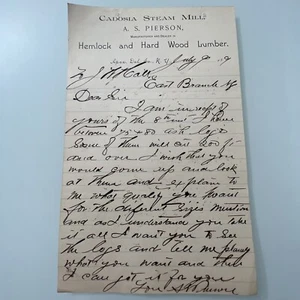 CADOSIA STEAM MILL.
A. S. PIERSON,
MANUFACTURER AND DEALER IN
Hemlock and Hard Wood Lumber.
N. Y. July 9
East Branch
Dear Sir
I am in recpt of
yours of the 8 inst I have
between 75 & 80 ash logs
Some of them will
and over I wish that you
would come up and look
at them and explain to
me what quality you want
for the different sizes
and as I understand you take
it all I want you to see
the logs and tell me plainly
what you want and then
I can get it for you